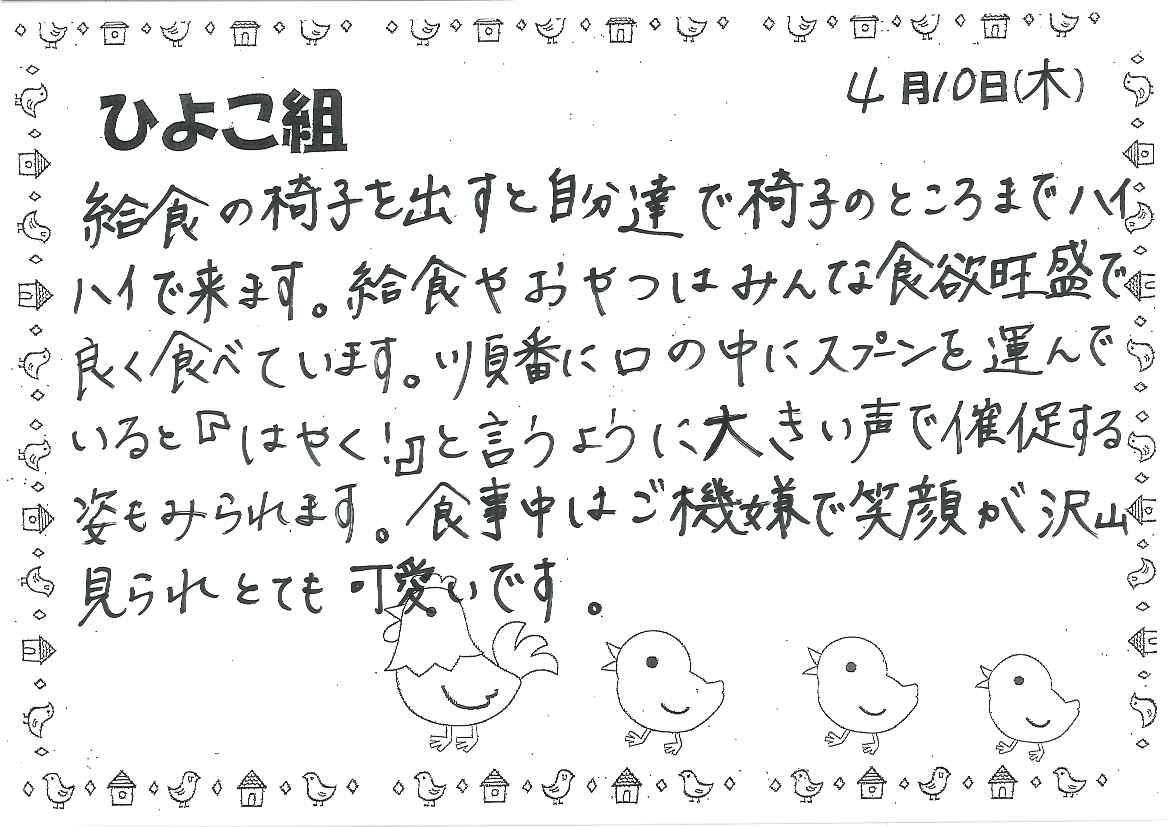 4月10日(木)
ひよこ組
給食の椅子を出すと自分達で椅子のところまでハイ
ハイで来ます。給食やおやつはみんな食欲旺盛で
良く食べています。順番に口の中にスプーンを運んで
いると『はやく!』と言うように大きい声で催促する
姿もみられます。食事中はご機嫌で笑顔が沢山
見られとても可愛いです。